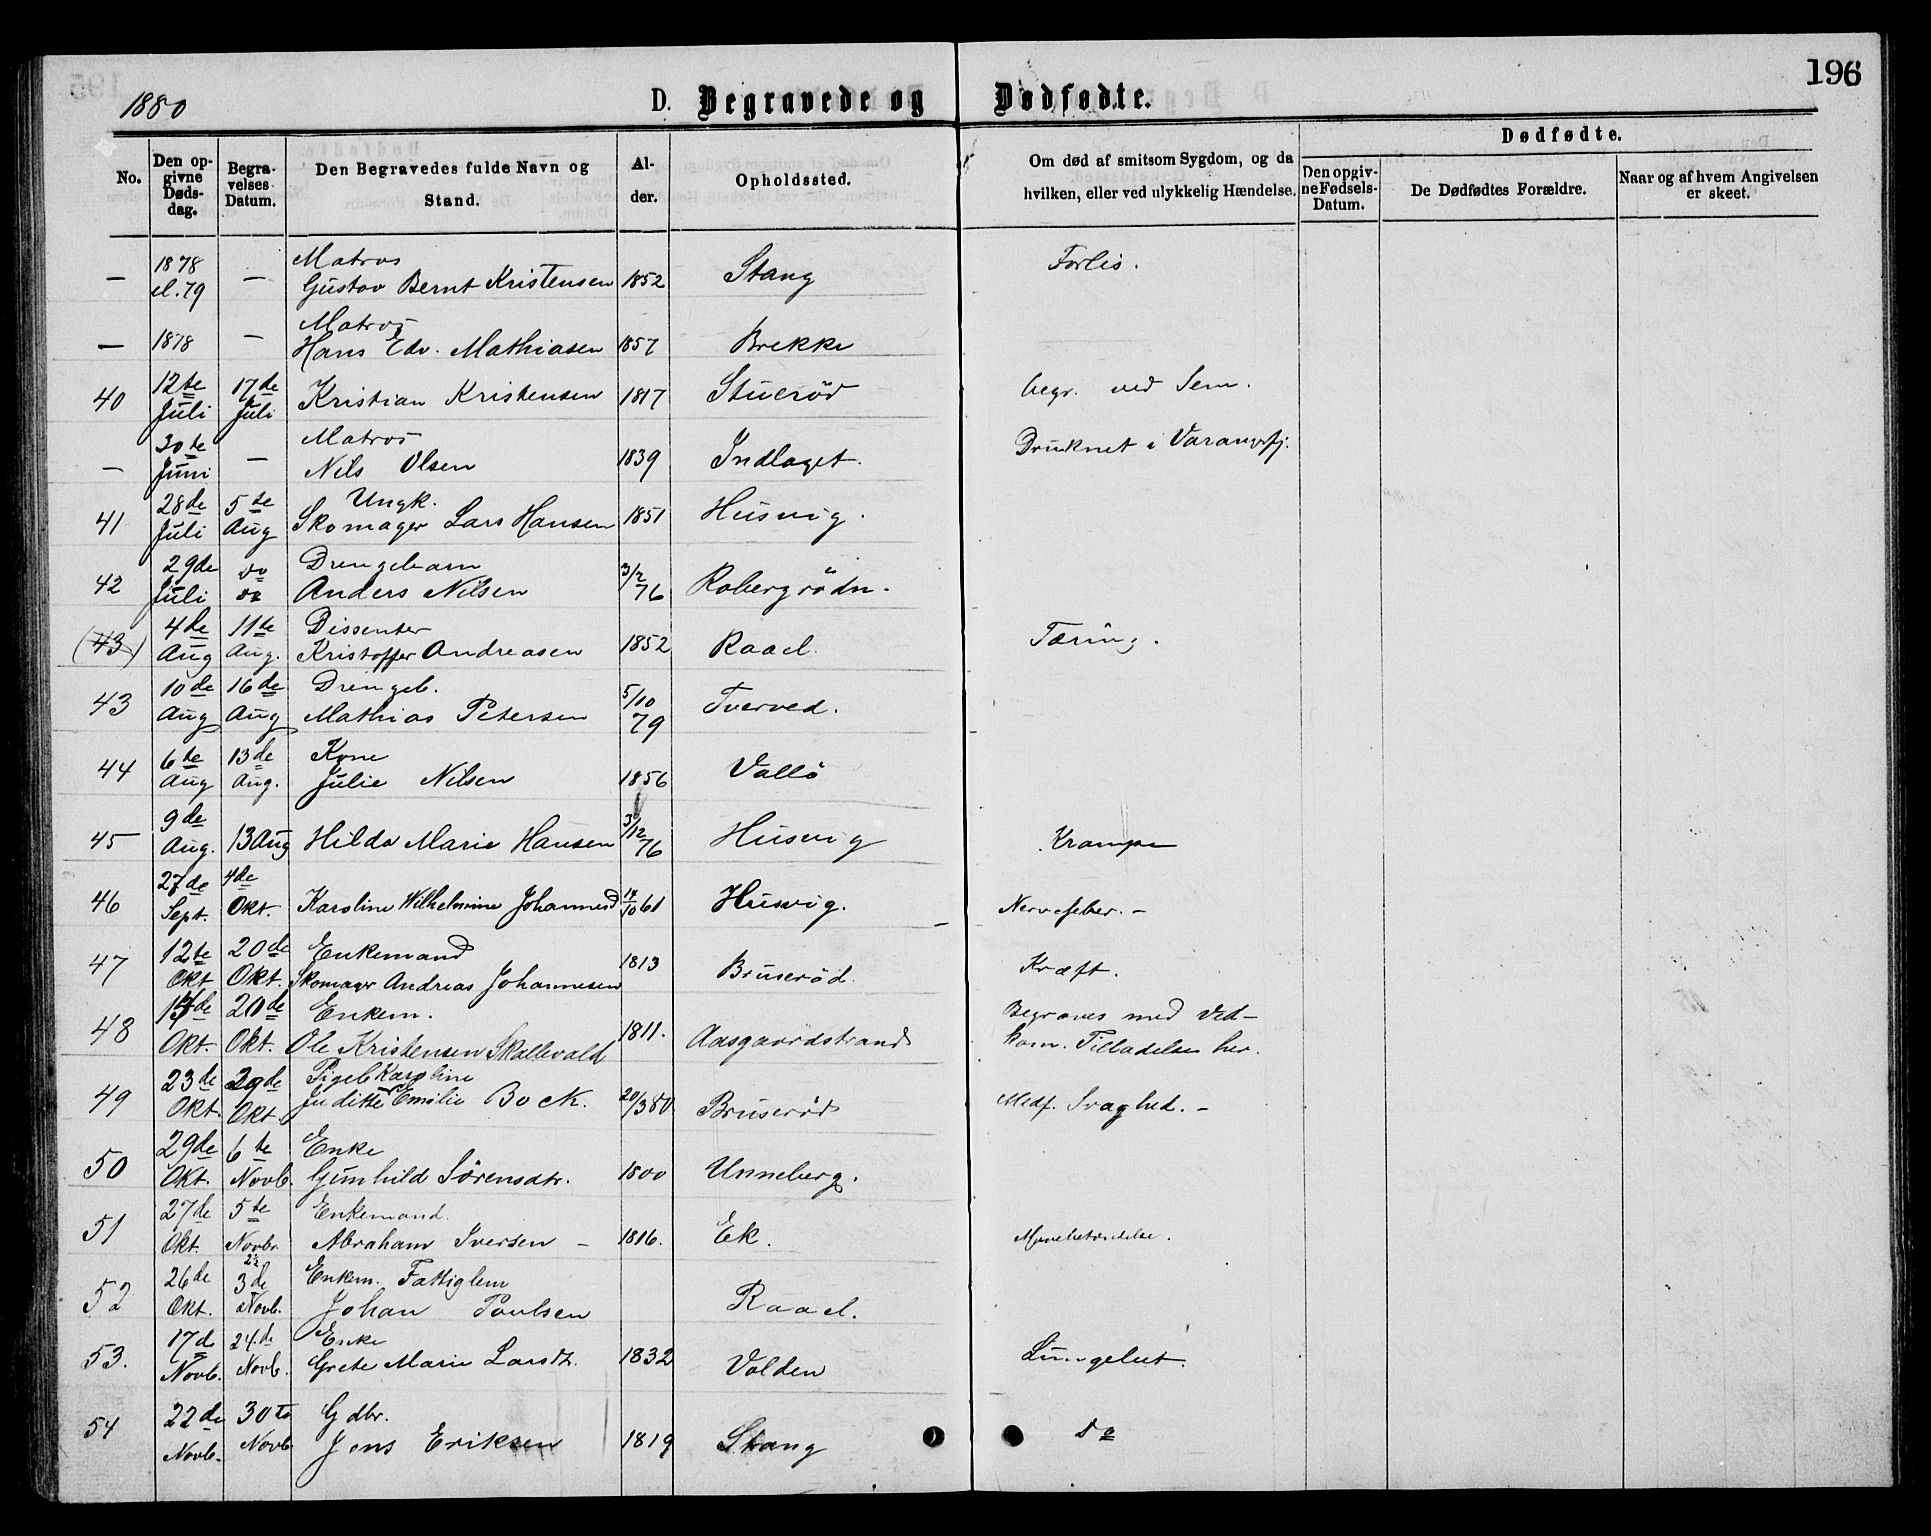 196
1880
D. Begravede og Dødfødte.
No.
Den opgivne Døds-dag.
Begravelses Datum.
Den Begravedes fulde Navn og Stand.
Alder.
Opholdssted.
Om død af smitsom Sygdom, og da hvilken, eller ved ulykkelig Hændelse.
Dødfødte.
Den opgivne Fødsels-Datum.
De Dødfødtes Forældre.
Naar og af hvem Angivelsen er skeet.
— 1878 el. 79 — Matros Gustav Bernt Kristensen 1852 Stang Forlis.
— 1878 — Matros Hans Edv. Mathiasen 1857 Brekke
40 12te Juli 17de Juli Kristian Kristensen 1817 Stuerød begr. ved Sem.
— 30te Juni — Matros Nils Olsen 1839 Indlaget. Druknet i Varangsfj.
41 28de Juli 5te Aug Ungk. Skomager Lars Hansen 1851 Husvig.
42 29de Juli do do Drengebarn Anders Nilsen 3/2 76 Robergrödn.
(43) 4de Aug 11te Aug. Dissenter Kristoffer Andreasen 1852 Raael. Tæring.
43 10de Aug 16de Aug Drengeb. Mathias Petersen 5/10 79 Tverved.
44 6te Aug 13de Aug. Kone Julie Nilsen 1856 Vallö
45 9de Aug. 13 Aug Hilda Marie Hansen 3/12 76 Husvig Krampe
46 27de Sept. 4de Okt. Karoline Wilhelmine Johannesd 14/10 61 Husvig. Nervefeber. —
47 12te Okt 20de Okt. Enkemand Skomager Andreas Johannesen 1813 Bruseröd. Kræft.
48 Okt. 20de Okt. Enkem. Ole Kristensen Skallevald 1811. Aasgaardstrand Begraves med Ved-
kom. Tilladelse her.
49 23de Okt. 29de Okt. Pigeb. Karoline Juditte Emilie Bock. 20/3 80 Bruserød Medf. Svaghed. —
50 29de Okt. 6te Novb. Enke Gunhild Sörensdtr. 1800 Unneberg.
51 27de Okt. 5te Novbr. Enkemand. Abraham Iversen — 1816. Ek.
52 26de Okt. 3de Novb. Enkem. Fattiglem Johan Paulsen Raael.
53. 17d Novb. 24.de Novb. Enke Grete Marie Larsdt. 1832 Volden Lungebet.
54 22de Novb. 30te Novb Gdbr. Jens Eriksen 1819 Stang do